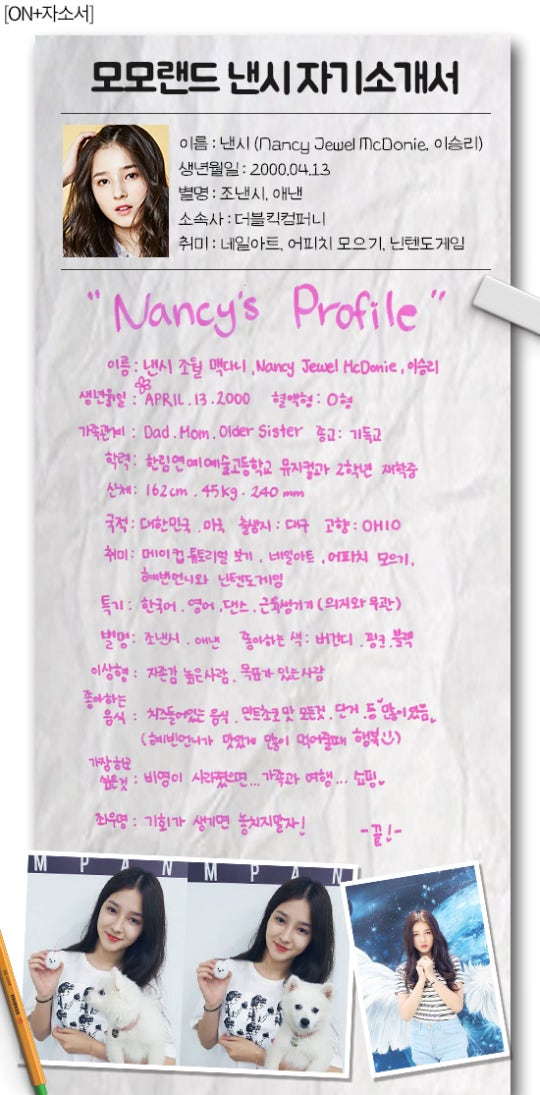 [ON+자소서]
모모랜드 낸시 자기소개서
이름 : 낸시 (Nancy Jewel McDonie, 이승리)
생년월일 : 2000.04.13
별명 : 조낸시, 애낸
소속사 : 더블킥컴퍼니
취미 : 네일아트, 어피치 모으기, 닌텐도게임
"Nancy's Profile"
이름 : 낸시 조월 맥다니, Nancy Jewel McDonie, 이승리
생년월일 : APRIL.13.2000 혈액형 : O형
가족관계 : Dad. Mom. Older Sister 종교 : 기독교
학력 : 한림연예예술고등학교 뮤지컬과 2학년 재학중
신체 : 162cm . 45kg . 240 mm
국적 : 대한민국, 미국 출생지 : 대구 고향 : OHIO
취미 : 메이컵 튜토리얼 보기, 네일아트, 어피치 모으기,
혜빈언니와 닌텐도게임
특기 : 한국어, 영어, 댄스, 근육생기기 (의지와 무관)
별명 : 조낸시, 애낸 좋아하는 색 : 버건디, 핑크, 블랙
이상형 : 자존감 높은사람, 목표가 있는사람
좋아하는
음식 : 치즈들어있는 음식, 민트초코 맛 모든것, 단거, 등 많이있음
(혜빈언니가 맛있게 많이 먹어줄때 행복)
가장 하고
싶은것 : 비염이 사라졌으면... 가족과 여행... 쇼핑
좌우명 : 기회가 생기면 놓치지말자!
-끝!-
M P A N
M P A N